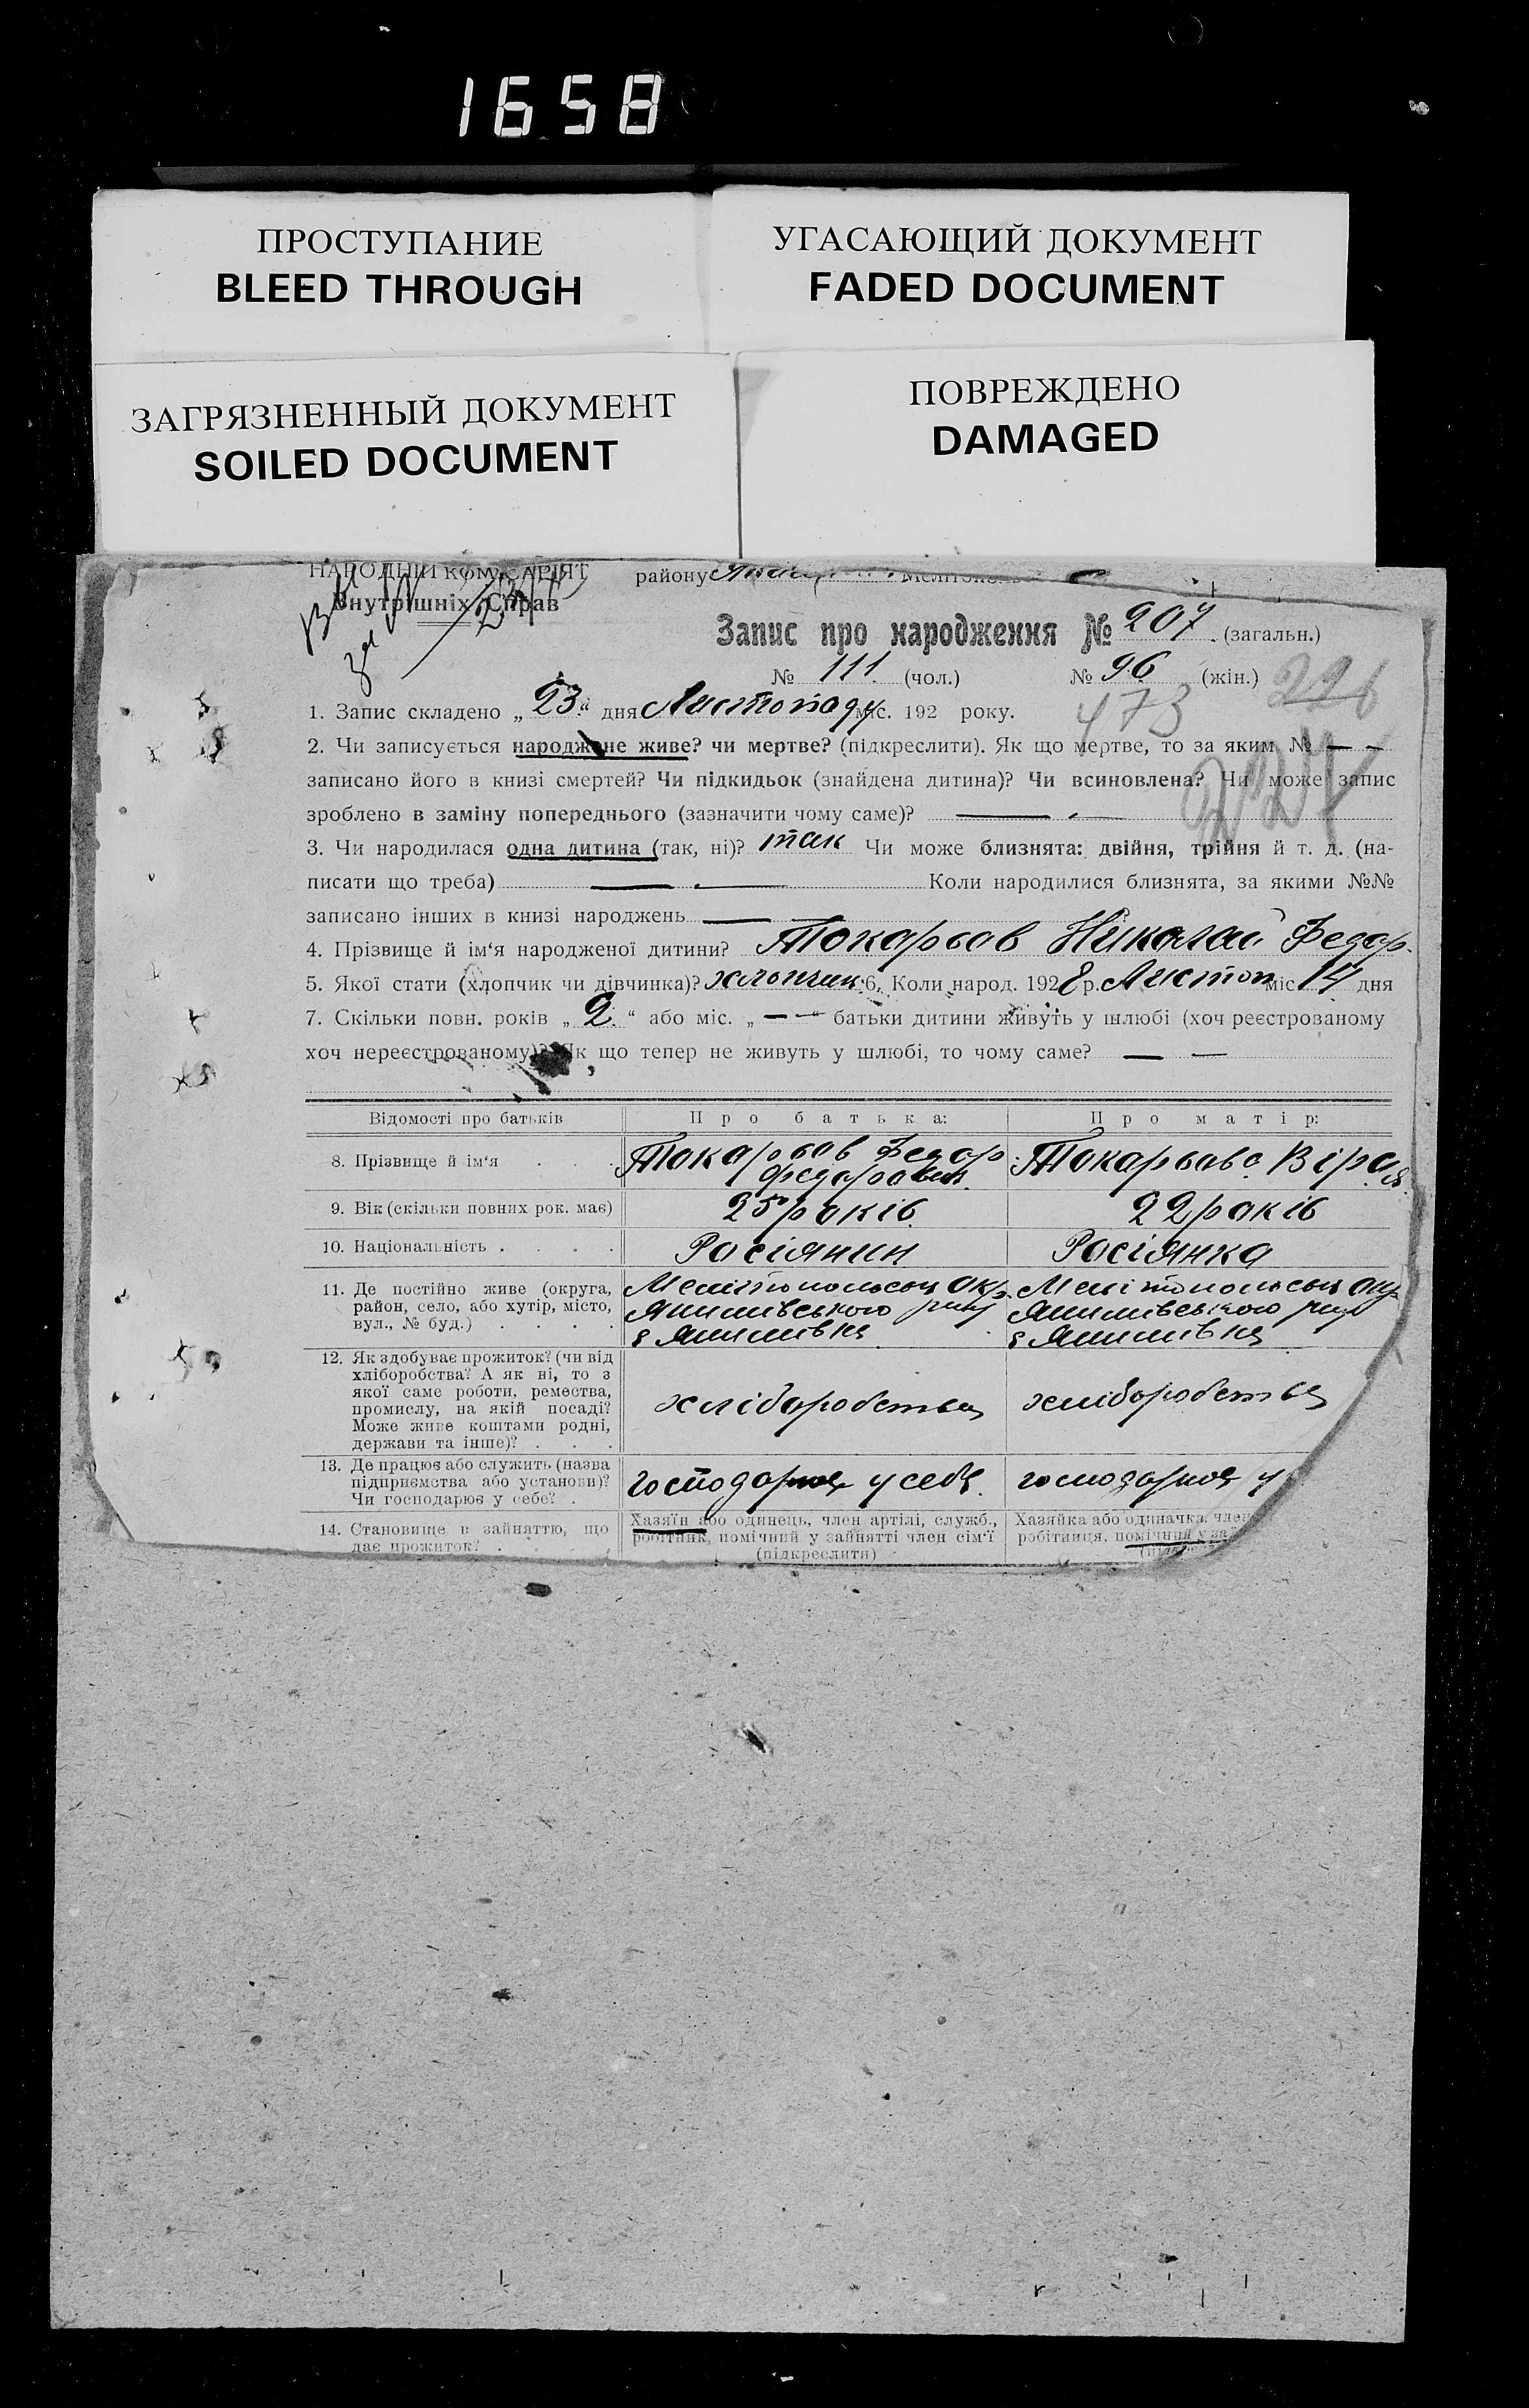 1658
ПРОСТУПАНИЕ
BLEED THROUGH
УГАСАЮЩИЙ ДОКУМЕНТ
FADED DOCUMENT
ЗАГРЯЗНЕННЫЙ ДОКУМЕНТ
SOILED DOCUMENT
ПОВРЕЖДЕНО
DAMAGED
НАРОДНІЙ КОМІСАРІЯТ району
Внутрішніх Справ
Запис про народження № 207 (загальн.)
№ 111 (чол.) № 96 (жін.) 226
473
1. Запис складено „23“ дня Листопаду міс. 192 року.
2. Чи записується народжене живе? чи мертве? (підкреслити). Як що мертве, то за яким № — —
записано його в книзі смертей? Чи підкидьок (знайдена дитина)? Чи всиновлена? Чи може запис
зроблено в заміну попереднього (зазначити чому саме)? — —
3. Чи народилася одна дитина (так, ні)? так Чи може близнята: двійня, трійня й т. д. (на-
писати що треба) — — Коли народилися близнята, за якими №№
записано інших в книзі народжень —
4. Прізвище й ім‘я народженої дитини? Токарьов Николай Федор.
5. Якої стати (хлопчик чи дівчинка)? хлопчик 6. Коли народ. 1928 р. Листоп міс 14 дня
7. Скільки повн. років „2“ або міс. „— —“ батьки дитини живуть у шлюбі (хоч реєстрованому
хоч нереєстрованому)? Як що тепер не живуть у шлюбі, то чому саме? — —
Відомості про батьків Про батька: Про матір:
8. Прізвище й ім‘я . . . Токарьов Федор Токарьова Віра
Федорович
9. Вік (скільки повних рок. має) 25 років 22 років
10. Національність . . . . Росіянин Росіянка
11. Де постійно живе (округа, Мелітопольськ окр. Мелітопольськ окр
район, село, або хутір, місто, Якимівського рну Якимівського рну
вул., № буд.) . . . . Якимівка Якимівка
12. Як здобуває прожиток? (чи від
хліборобства? А як ні, то з
якої саме роботи, ремества,
промислу, на якій посаді? хліборобства хліборобства
Може живе коштами родні,
держави та інше)? . . .
13. Де працює або служить (назва
підприємства або установи)? господарює у себе господарює у
Чи господарює у себе? .
14. Становище в зайняттю, що Хазяїн або одинець, член артілі, служб., Хазяйка або одиначка, член
дає прожиток? . робітник, помічний у зайнятті член сім‘ї робітниця, помічний у за
(підкреслити)